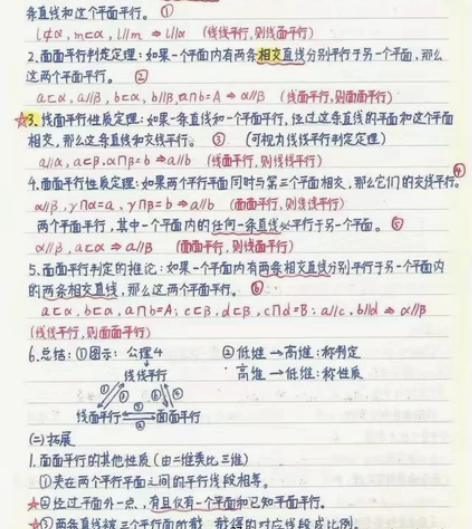 条直线和这个平面平行。 ①
l⊄α, m⊂α, l∥m ⇒ l∥α (线线平行,则线面平行)
2.面面平行判定定理:如果一个平面内有两条相交直线分别平行于另一个平面,那么
这两个平面平行。 ②
a⊂α, a∥β, b⊂α, b∥β, a∩b=A ⇒ α∥β (线面平行,则面面平行)
☆3.线面平行性质定理:如果一条直线和一个平面平行,经过这条直线的平面和这个平面
相交,那么这条直线和交线平行。 ③ (可视为线线平行判定定理)
a∥α, a⊂β, α∩β=b ⇒ a∥b (线面平行,则线线平行)
4.面面平行性质定理:如果两个平行平面同时与第三个平面相交,那么它们的交线平行。④
α∥β, γ∩α=a, γ∩β=b ⇒ a∥b (面面平行,则线线平行)
两个平面平行,其中一个平面内的任何一条直线必平行于另一个平面。 ⑤
α∥β, a⊂α ⇒ a∥β (面面平行,则线面平行)
5.面面平行判定的推论:如果一个平面内有两条相交直线分别平行于另一个平面内
的两条相交直线,那么这两个平面平行。 ⑥
a⊂α, b⊂α, a∩b=A; c⊂β, d⊂β, c∩d=B; a∥c, b∥d ⇒ α∥β
(线线平行,则面面平行)
6.总结:①图示: 公理4 ②低维→高维:称判定
线线平行 高维→低维:称性质
线面平行 面面平行
(二)拓展
1.面面平行的其他性质(由二维类比三维)
①夹在两个平行平面之间的平行线段相等。
☆②经过平面外一点,有且仅有一个平面和已知平面平行。
☆③两条直线被三个平行面所截,截得的对应线段成比例。